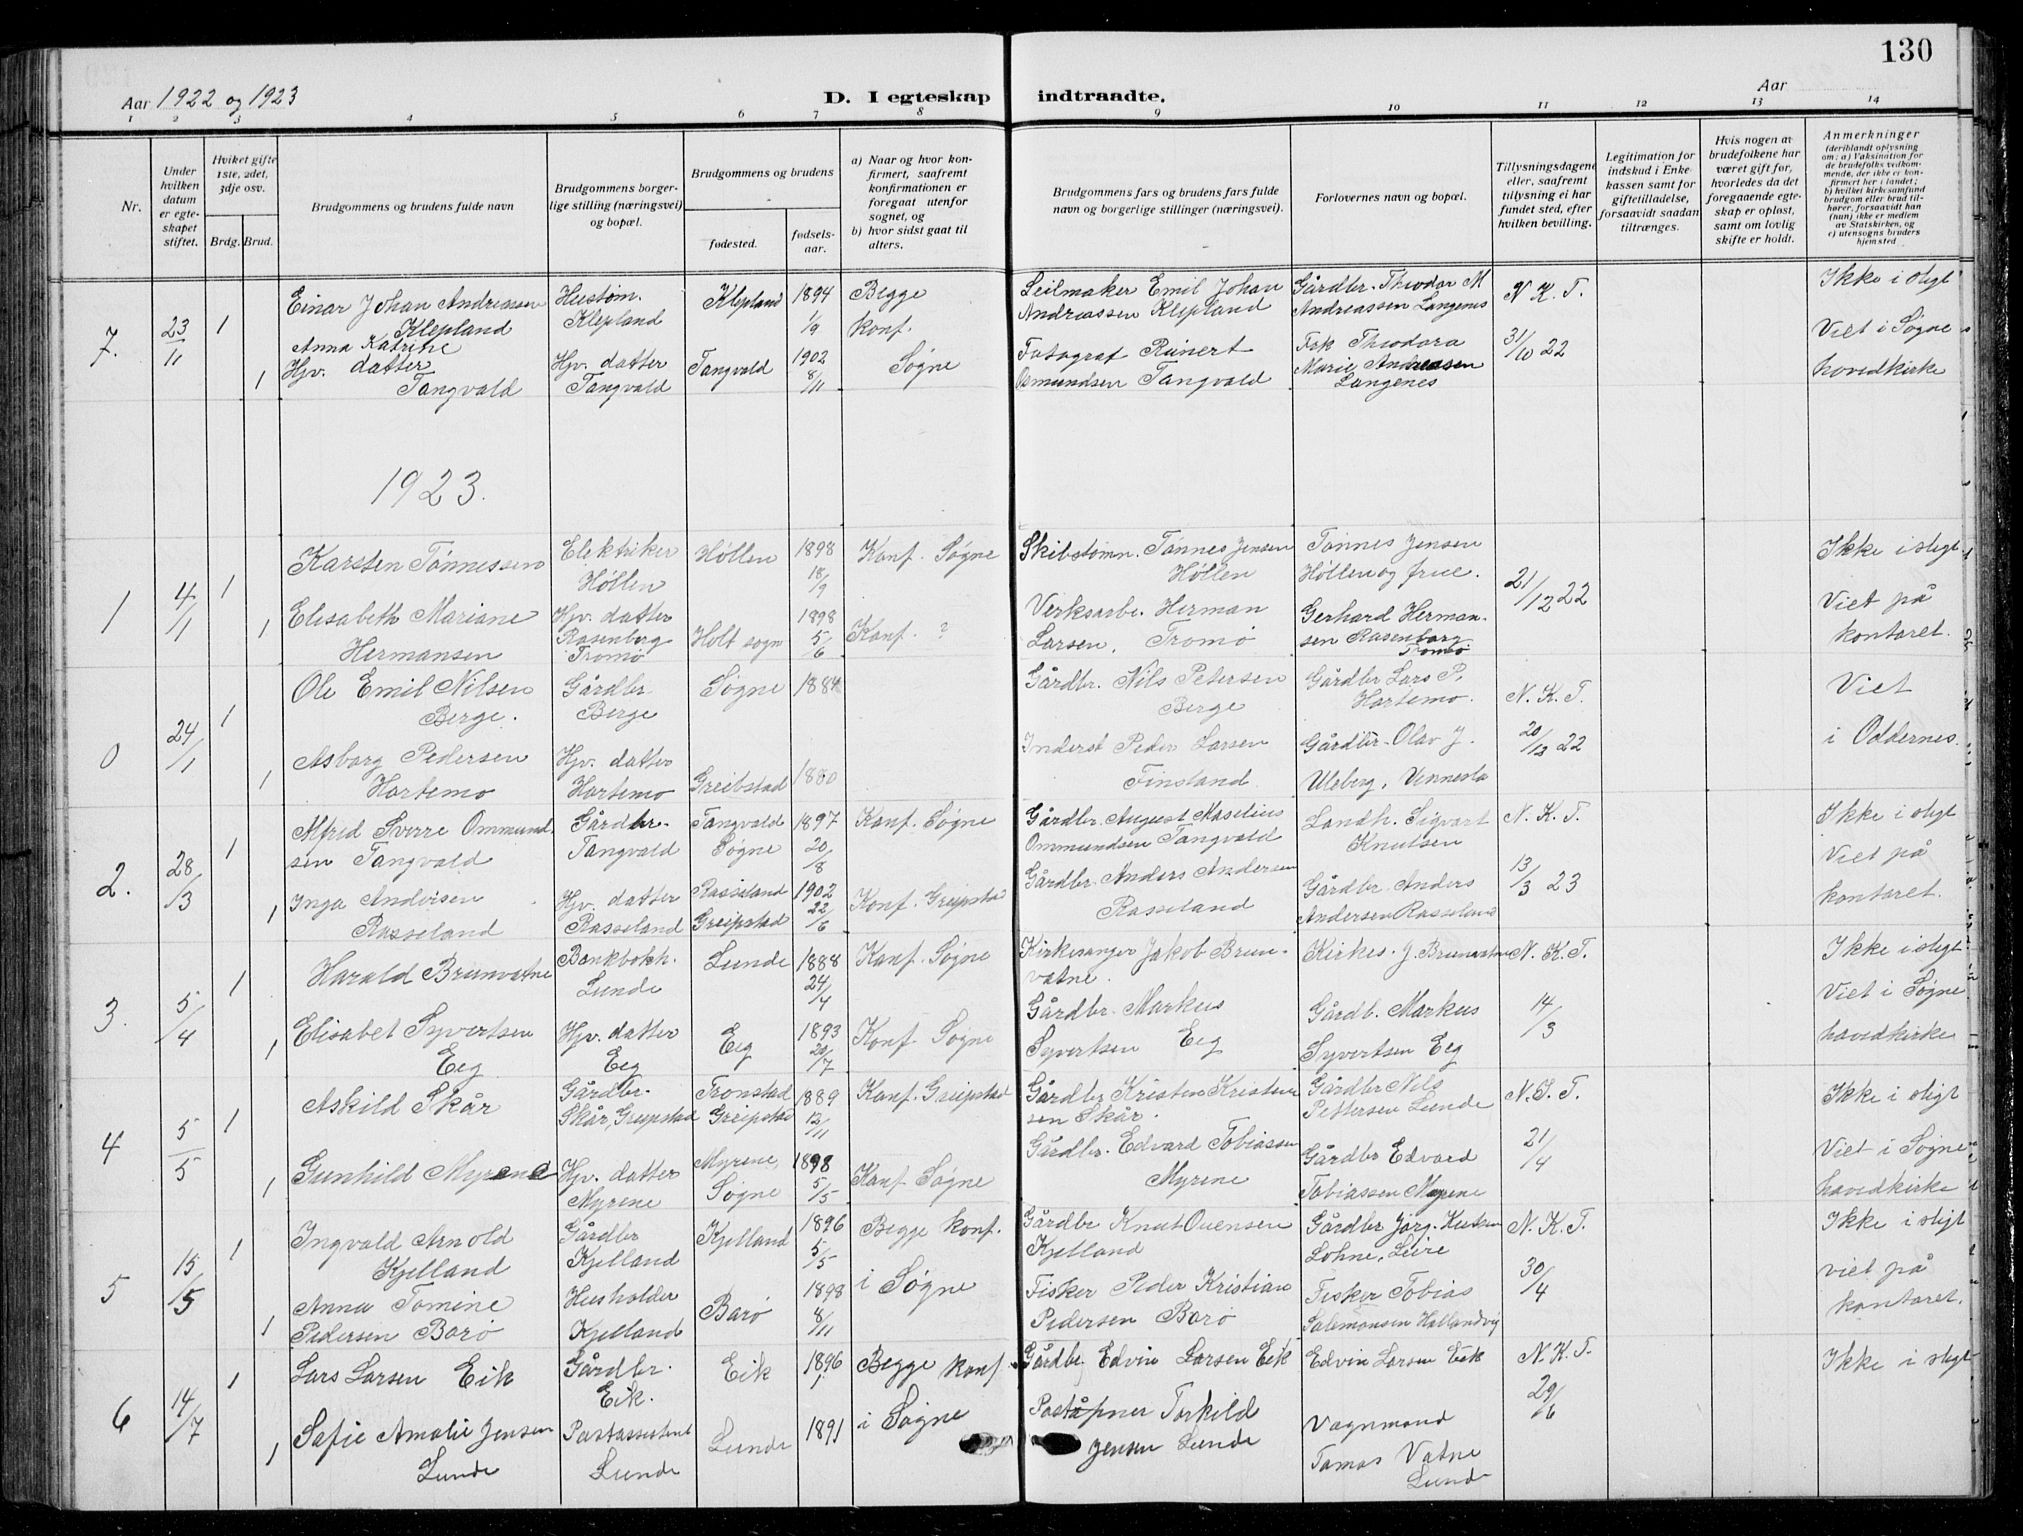 130
Aar 1922 og 1923
D. I egteskap indtraadte.
Aar
1 2 3 4 5 6 7 8 9 10 11 12 13 14
Nr.
Under hvilken datum er egteskapet stiftet.
Hviket gifte 1ste, 2det, 3dje osv.
Brdg. Brud.
Brudgommens og brudens fulde navn
Brudgommens borgerlige stilling (næringsvei) og bopæl.
Brudgommens og brudens
fødested.
fødselsaar.
a) Naar og hvor konfirmert, saafremt konfirmationen er foregaat utenfor sognet, og
b) hvor sidst gaat til alters.
Brudgommens fars og brudens fars fulde navn og borgerlige stillinger (næringsvei).
Forlovernes navn og bopæl.
Tillysningsdagene eller, saafremt tillysning ei har fundet sted, efter hvilken bevilling.
Legitimation for indskud i Enkekassen samt for giftetilladelse, forsaavidt saadan tiltrænges.
Hvis nogen av brudefolkene har været gift før, hvorledes da det foregaaende egteskap er opløst, samt om lovlig skifte er holdt.
Anmerkninger
(deriblandt oplysning om: a) Vaksination for de brudefolks vedkommende, der ikke er konfirmert her i landet; b) hvilket kirkesamfund brudgom eller brud tilhører, forsaavidt han (hun) ikke er medlem av Statskirken, og c) utensogns bruders hjemsted
7. 23/11 1
Einar Johan Andreassen
Klepland
Hustøm.
Klepland
Klepland
1894
1/9
Begge
konf.
Søgne
Seilmaker Emil Johan
Andreassen Klepland
Gårdbr. Theodor M
Andreassen Langenes
N. K. T.
31/10 22
Ikke i slegt
Viet i Søgne
hovedkirke
1
Anna Katrine
Hjv. datter
Tangvald
Hjv. datter
Tangvald
Tangvald
1902
8/11
Fotograf Reinert
Osmundsen Tangvald
Frk Theodora
Marie Andreassen
Langenes
1923.
1 4/1 1
Karsten Tønnessen
Elektriker
Høllen
Høllen
1898
18/9
Konf. Søgne
Skibstømn. Tønnes Jensen
Høllen
Tønnes Jensen
Høllen og frue.
21/12 22
Ikke i slegt.
Viet på
kontoret.
1
Elisabeth Mariane
Hermansen
Hjv. datter
Rosenberg
Tromø
Holt sogn
1898
5/6
Konf. ?
Verksarbe. Herman
Larsen, Tromø
Gerhard Herman-
sen Rosenborg
Tromø
0 24/1 1
Ole Emil Nilsen
Berge.
Gårdbr
Berge
Søgne
1884
Gårdbr. Nils Petersen
Berge
Gårdbr Lars P.
Hortemo.
N. K. T.
20/12 22
Viet
i Oddernes
1
Asborg Pedersen
Hortemo
Hjv. datter
Hortemo
Greibstad
1880
Inderst Peder Larsen
Finsland
Gårdbr. Olav J.
Uleberg, Vennesla
2. 28/3 1
Alfred Sverre Ommund
sen Tangvald
Gårdbr.
Tangvald
Tangvald
Søgne
1897
20/8
Konf. Søgne
Gårdbr. August Maselius
Ommundsen Tangvald
Landh. Sigvart
Knutsen
N. K. T.
13/3 23
Ikke i slegt
Viet på
kontoret.
1
Inga Andersen
Rosseland
Hjv. datter
Rosseland
Rosseland
Greipstad
1902
22/6
Konf. Greipstad
Gårdbr. Anders Andersen
Rosseland
Gårdbr. Anders
Andersen Rosseland
3. 5/4 1
Harald Brunvatne
Bankbokh.
Lunde
Lunde
1888
24/4
Konf. Søgne
Kirkesanger Jakob Brun-
vatne.
Kirkes. J. Brunvatne
N. K. T.
14/3
Ikke i slegt
Viet i Søgne
hovedkirke
1
Elisabet Syvertsen
Eeg
Hjv. datter
Eeg
Eeg
1893
20/7
Konf. Søgne
Gårdbr. Markus
Syvertsen Eeg
Gårdb. Markus
Syvertsen Eeg
4 5/5 1
Askild Skår
Gårdbr.
Skår, Greipstad
Tronstad
Greipstad
1889
12/11
Konf. Greipstad
Gårdbr Kristen Kristen
sen Skår.
Gårdbr Nils
Pettersen Lunde
21/4
Ikke i slegt
Viet i Søgne
hovedkirke
1
Gunhild Myrene
Hjv. datter
Myrene
Myrene,
Søgne
1898
5/5
Konf. Søgne
Gårdbr. Edvard Tobiassen
Myrene
Gårdbr Edvard
Tobiassen Myrene
5 15/5 1
Ingvald Arnold
Kjelland
Gårdbr
Kjelland
Kjelland
1896
5/5
Begge konf.
i Søgne
Gårdbr Knut Ouensen
Kjelland
Gårdbr Jørg. Knutsen
Lohne, Leire
N. K. T.
30/4
Ikke i slegt
viet på
kontoret.
1
Anna Tomine
Pedersen Borø
Husholder
Kjelland
Borø
1898
8/11
Fisker Peder Kristian
Pedersen Borø
Fisker Tobias
Salomonsen Hollandvig
6 14/7 1
Lars Larsen Eik
Gårdbr.
Eik.
Eik
1896
Begge konf.
i Søgne
Gårdbr. Edvin Larsen Eik
Edvin Larsen Eik
N. K. T.
29/6
Ikke i slegt
1
Sofie Amalie Jensen
Lunde
Postassistent
Lunde
Lunde
1891
Poståpner Torkild
Jensen Lunde
Vognmand
Tomas Vatne
Lunde